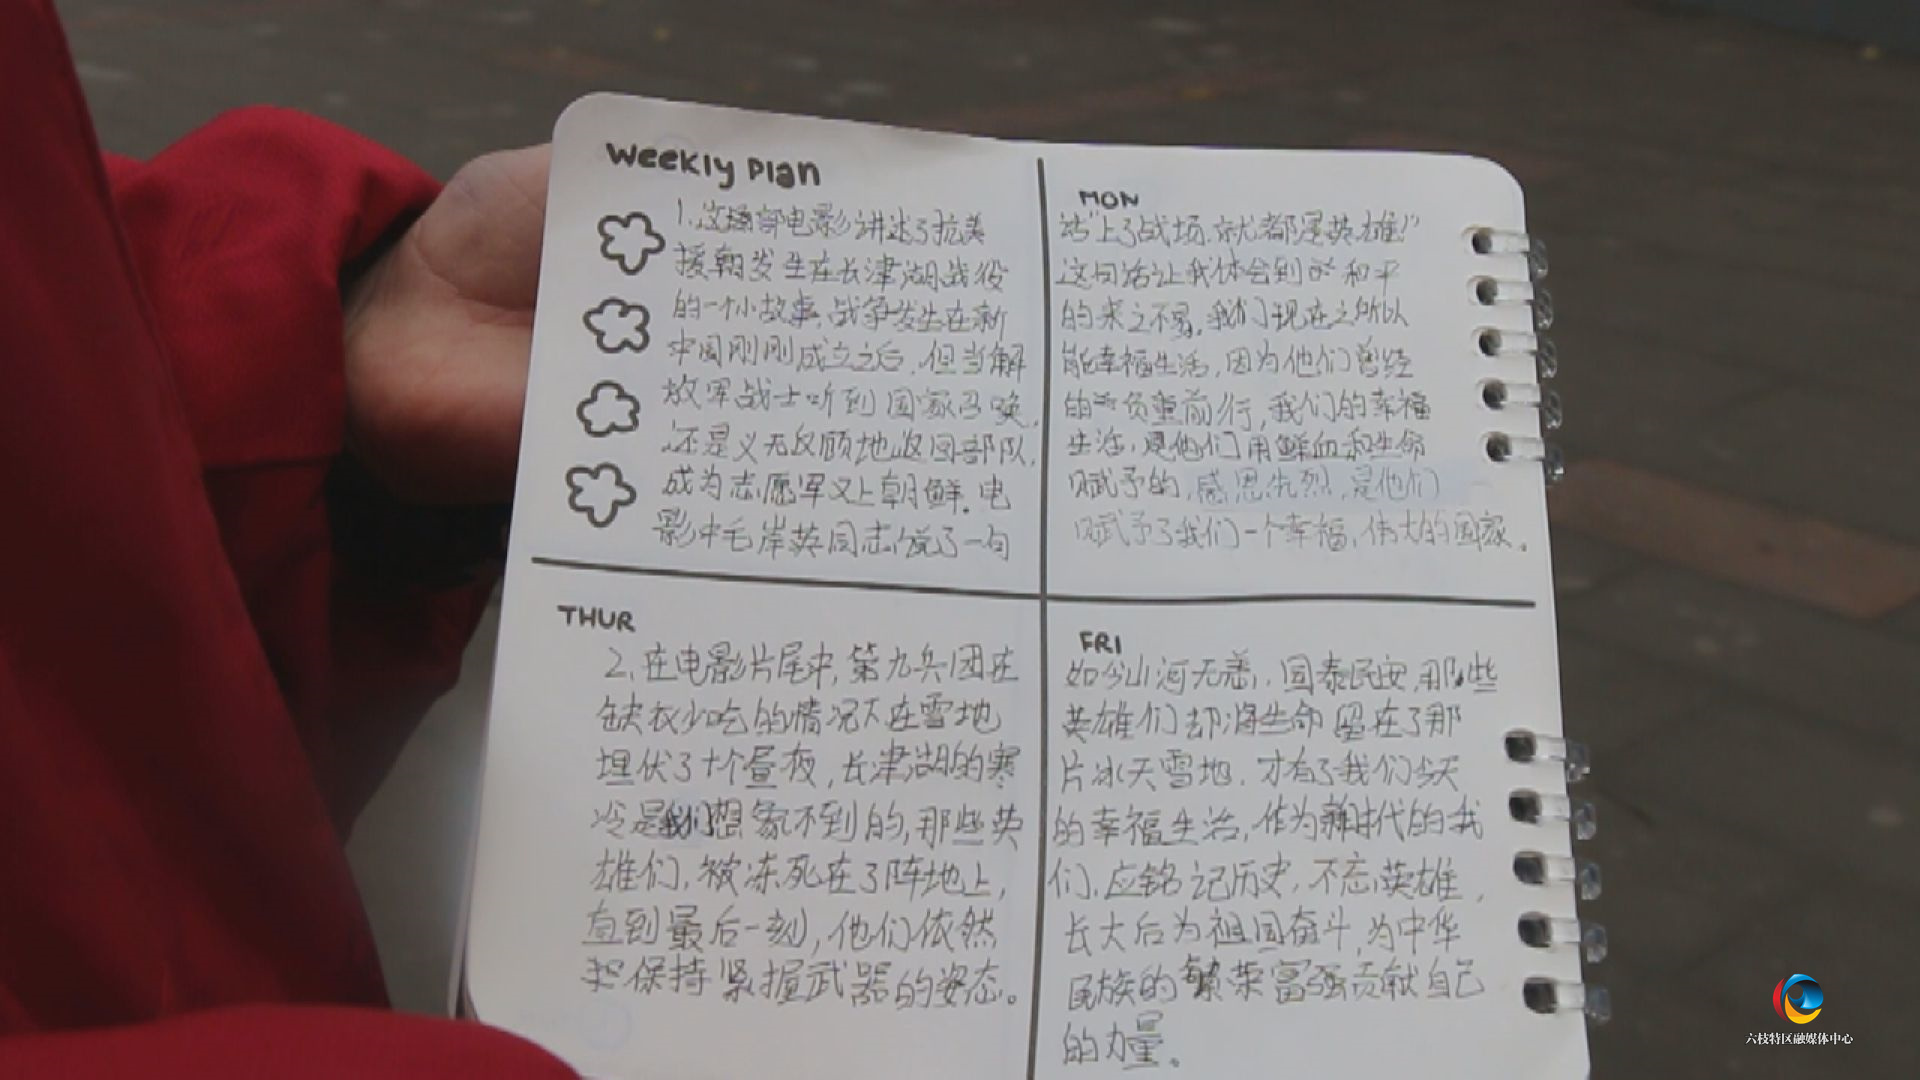 Weekly Plan
1.这部电影讲述了抗美
援朝发生在长津湖战役
的一个小故事,战争发生在新
中国刚刚成立之后,但当解
放军战士听到国家召唤,
还是义无反顾地返回部队,
成为志愿军又上朝鲜。电
影中毛岸英同志说了一句
MON
话"上了战场,就都是英雄!"
这句话让我体会到 和平
的来之不易,我们现在之所以
能幸福生活,因为他们曾经
的 负重前行,我们的幸福
生活,是他们用鲜血和生命
赋予的,感恩先烈,是他们
赋予了我们一个幸福,伟大的国家。
THUR
2,在电影片尾中,第九兵团在
缺衣少吃的情况下在雪地
埋伏了十个昼夜,长津湖的寒
冷是我们想象不到的,那些英
雄们,被冻死在了阵地上,
直到最后一刻,他们依然
保持紧握武器的姿态。
FRI
如今山河无恙,国泰民安,那些
英雄们却将生命留在了那
片冰天雪地,才有了我们今天
的幸福生活,作为新时代的我
们,应铭记历史,不忘英雄,
长大后为祖国奋斗,为中华
民族的繁荣富强贡献自己
的力量。
六枝特区融媒体中心